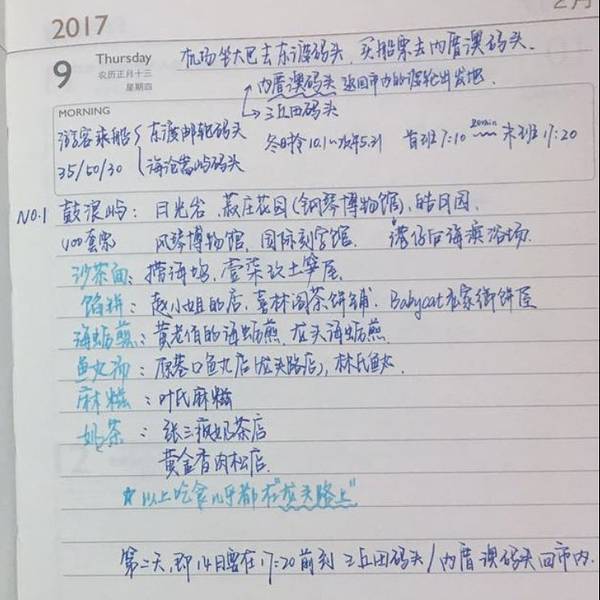 2017
2月
9 Thursday
农历正月十三
星期四
机场坐大巴去东渡码头,买船票去内厝澳码头.
内厝澳码头 返回市内的渡轮出发地.
三丘田码头
MORNING
游客乘船 东渡邮轮码头
35/50/30 海沧嵩屿码头
冬时令10.1~次年5.31 首班7:10 20min 末班17:20
NO.1 鼓浪屿: 日光岩,菽庄花园(钢琴博物馆),皓月园.
100套票 风琴博物馆,国际刻字馆. 港仔后海滨浴场.
沙茶面: 捞海坞,壹柒玖土笋屋
馅饼: 赵小姐的店,嘉林阁茶饼铺. Babycat私家御饼屋
海蛎煎: 黄老伯的海蛎煎,龙头海蛎煎
鱼丸汤: 原巷口鱼丸店(龙头路店),林氏鱼丸.
麻糍: 叶氏麻糍
奶茶: 张三疯奶茶店
黄金香肉松店.
☆以上吃食几乎都在"龙头路上"
第二天,即14日要在17:20前到三丘田码头/内厝澳码头回市内.